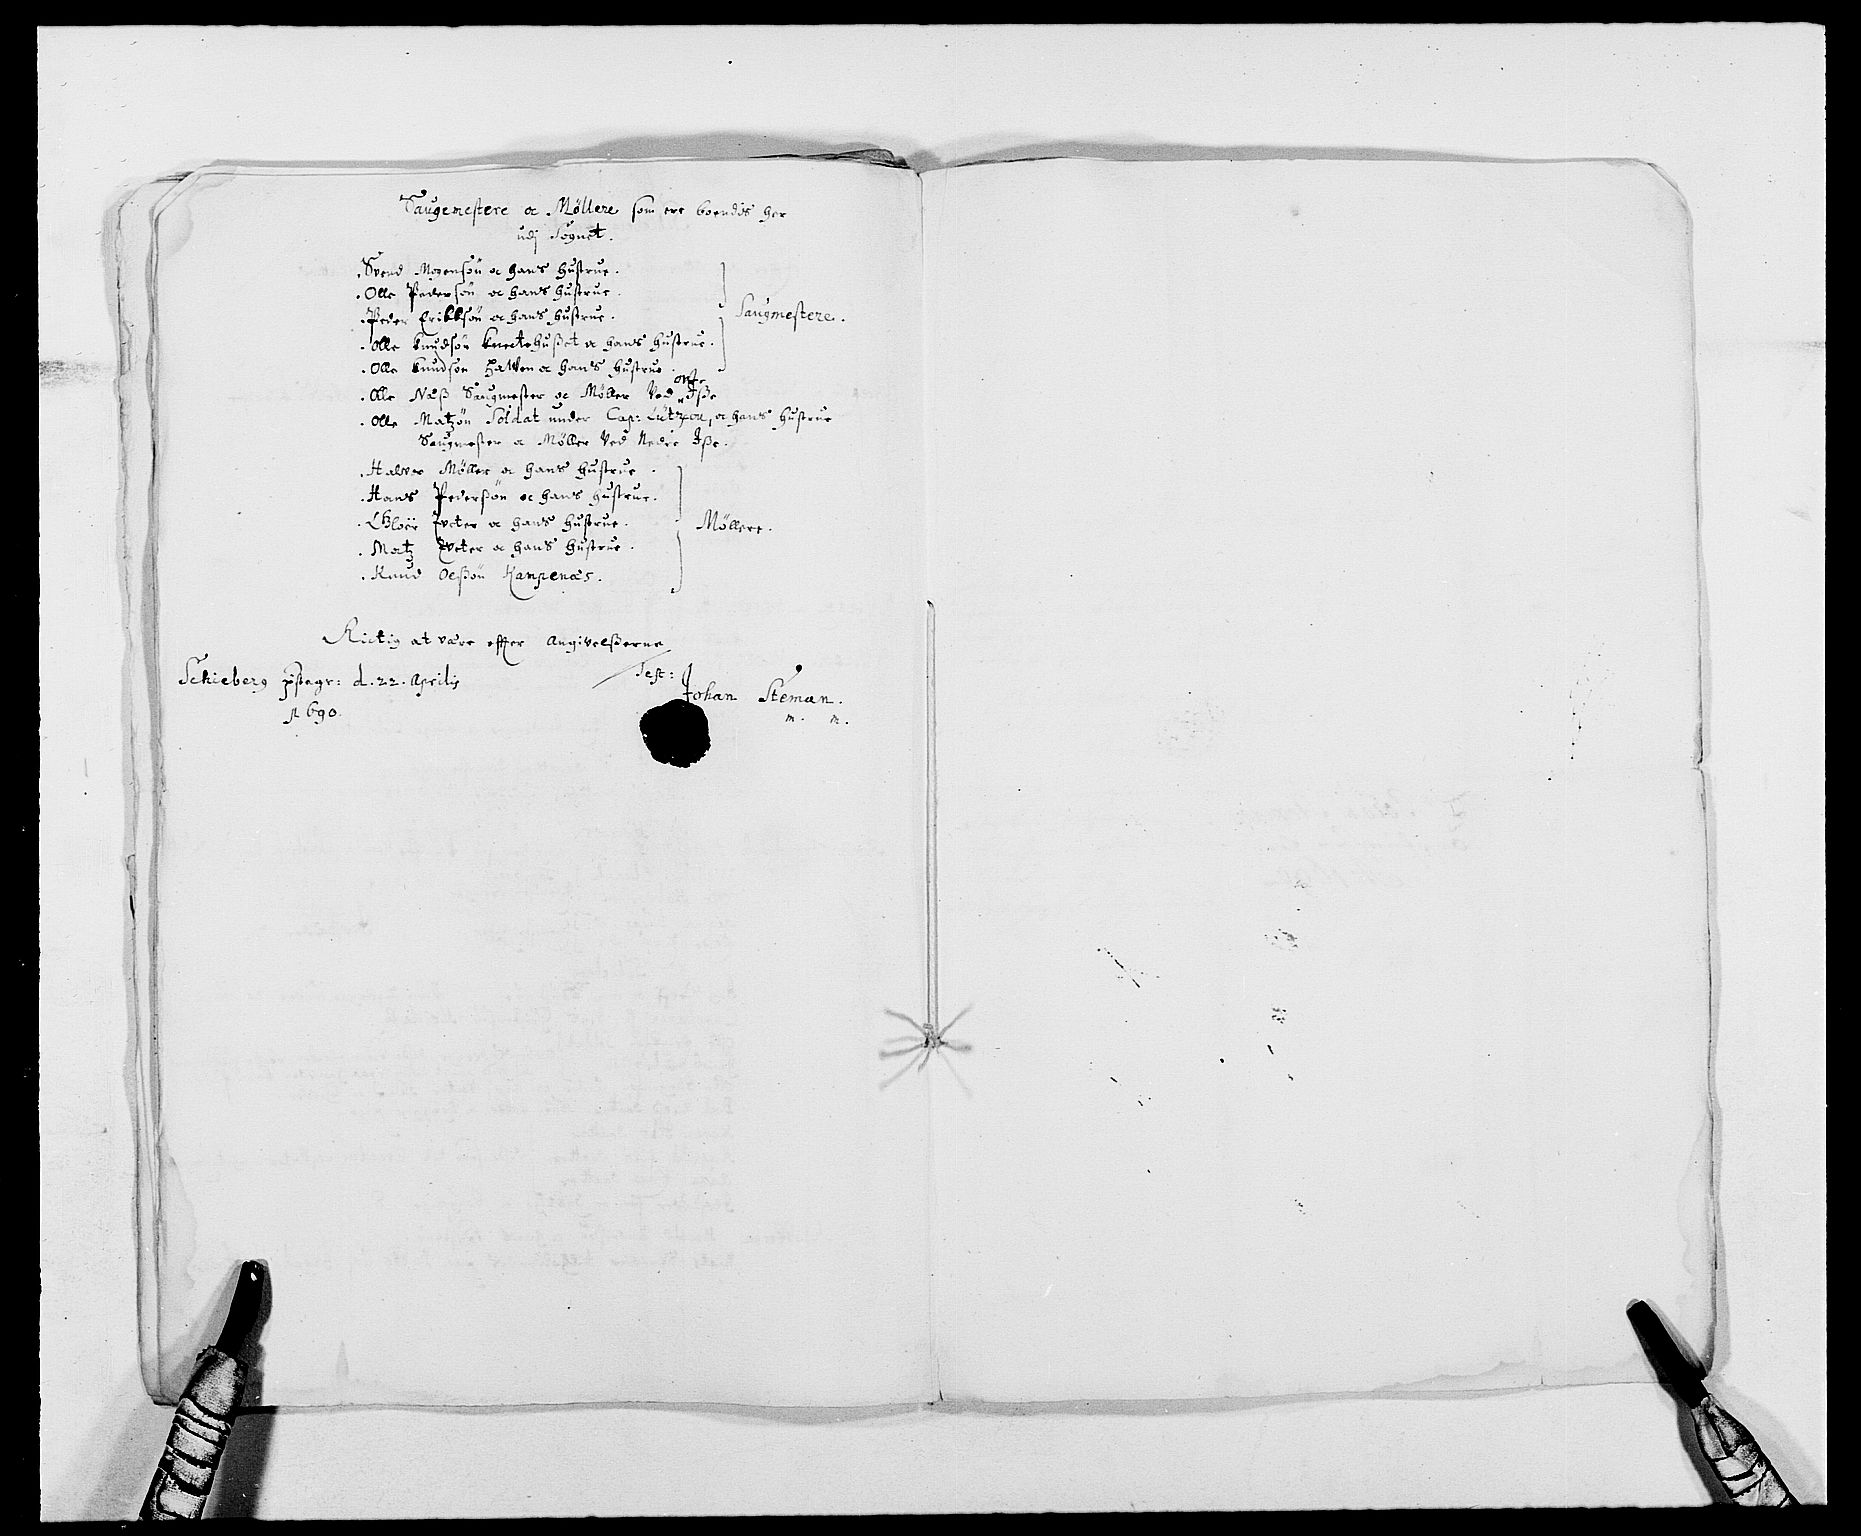 Saugmestere oc Møllere som ere boendis her
udj Sognet.
. Svend Mogensøn oc hans hustrue.
. Olle Pedersøn oc hans hustrue.
. Peder Erikksøn oc hans hustrue.
. Olle Knudsøn Knectehußet oc hans hustrue.
. Olle Knudsøn Halden oc hans hustrue.
Saugmestere.
. Olle Næß Saugmester oc Møller Ved Iße
. Olle Matzøn Soldat under Cap: Lützou, oc hans hustrue
Saugmester oc Møller Ved Nedre Iße.
. Halver Møller oc hans hustrue.
. Hans Pederßøn oc hans hustrue.
. Tveter oc hans hustrue.
. Matz Tveter oc hans hustrue.
. Knud Oelßøn Kampenæs.
Møllere.
Rictig at være effter Angivelßerne
Test:
Schieberg pstegr: d. 22. Aprilis
1690.
Johan Steman.
m. m.